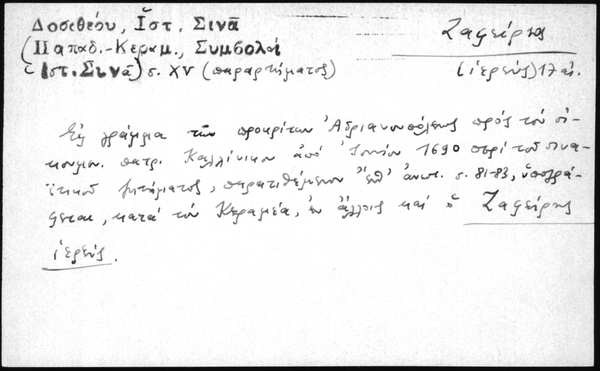 Δοσιθέου, Ἱστ. Σινᾶ
(Παπαδ.-Κεραμ., Συμβολαὶ
Ἱστ. Σινᾶ) σ. XV (παραρτήματος)
Ζαφείρης
(ἱερεύς) 17 αἰ.
Εἰς γράμμα τῶν προκρίτων Ἀδριανουπόλεως πρὸς τὸν οἰ-
κουμεν. πατρ. Καλλίνικον ἀπὸ 1690 περὶ τοῦ σινα-
ϊτικοῦ ζητήματος, παρατιθέμενον ἐπ' ἀνωτ. σ. 81-83, ὑπογρά-
φεται, κατὰ τὸν Κεραμέα, ἐν ἄλλοις καὶ ὁ Ζαφείρης
ἱερεύς.